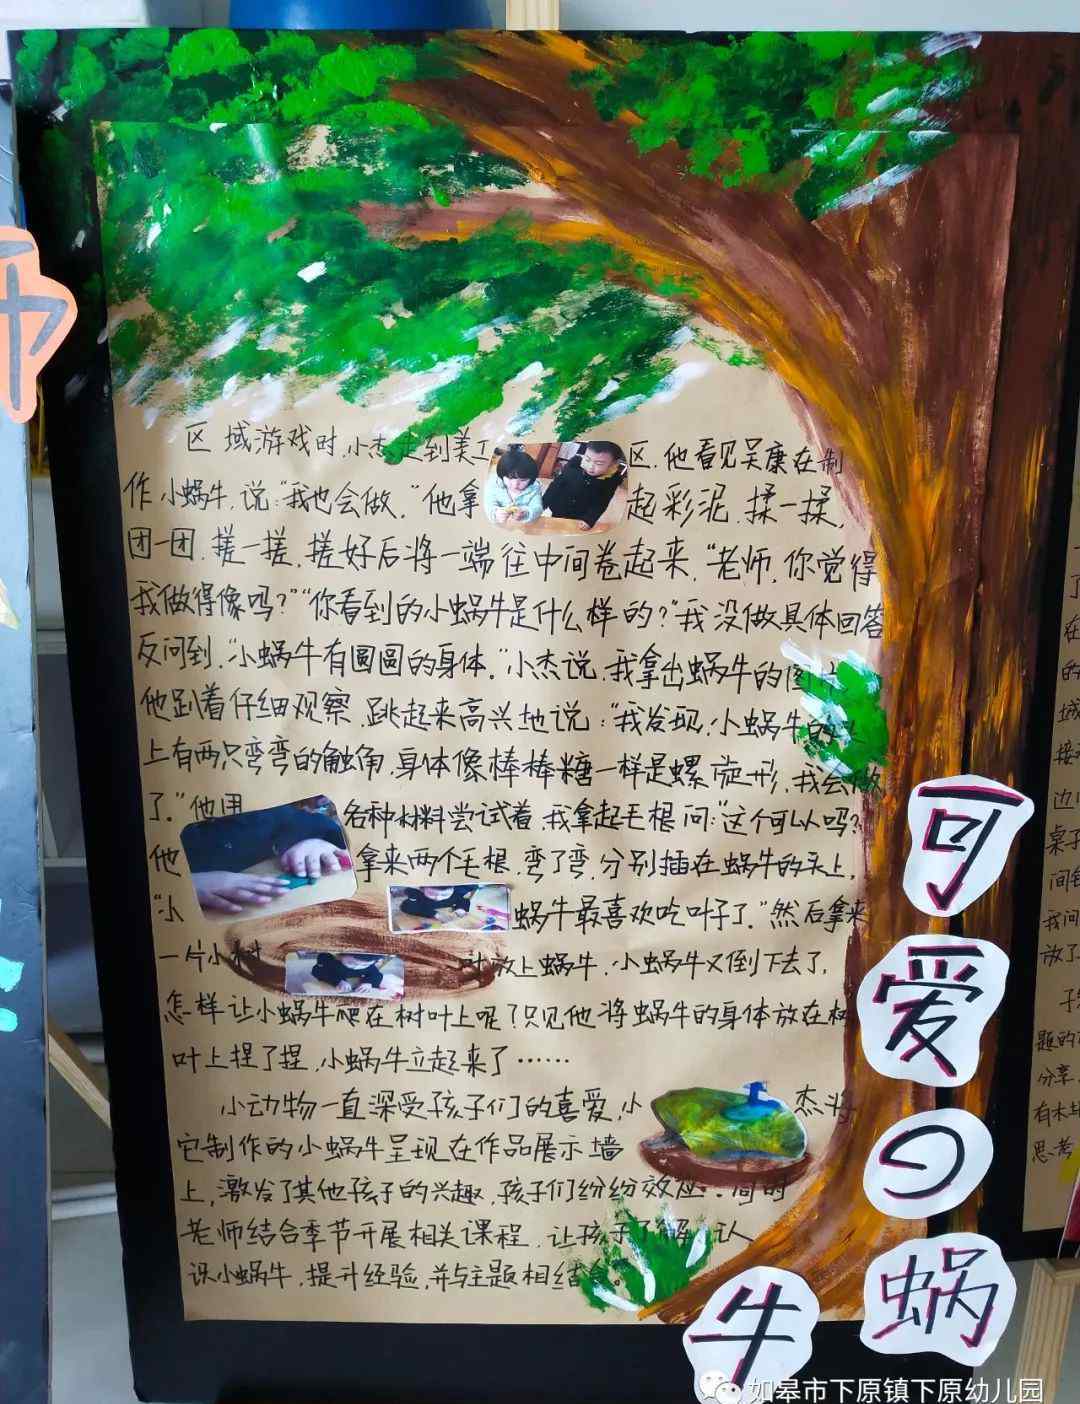 区域游戏时,小杰走到美工区,他看见吴康在制
作小蜗牛,说:“我也会做。”他拿起彩泥,揉一揉,
团一团,搓一搓,搓好后将一端往中间卷起来,“老师,你觉得
我做得像吗?”“你看到的小蜗牛是什么样的?”我没做具体回答
反问到,“小蜗牛有圆圆的身体。”小杰说,我拿出蜗牛的图
他趴着仔细观察,跳起来高兴地说:“我发现,小蜗牛的头
上有两只弯弯的触角,身体像棒棒糖一样是螺旋形,我会做
了。”他用各种材料尝试着,我拿起毛根问:“这个可以吗?
他拿来两个毛根,弯了弯,分别插在蜗牛的头上,
“小蜗牛最喜欢吃叶子了。”然后拿来
一片小树叶放上蜗牛,小蜗牛又倒下去了,
怎样让小蜗牛爬在树叶上呢?只见他将蜗牛的身体放在树
叶上捏了捏,小蜗牛立起来了……
小动物一直深受孩子们的喜爱,小杰将
它制作的小蜗牛呈现在作品展示墙
上,激发了其他孩子的兴趣,孩子们纷纷效应。同时
老师结合季节开展相关课程,让孩子了解、认
识小蜗牛,提升经验,并与主题相结合。
可爱的蜗牛
如皋市下原镇下原幼儿园